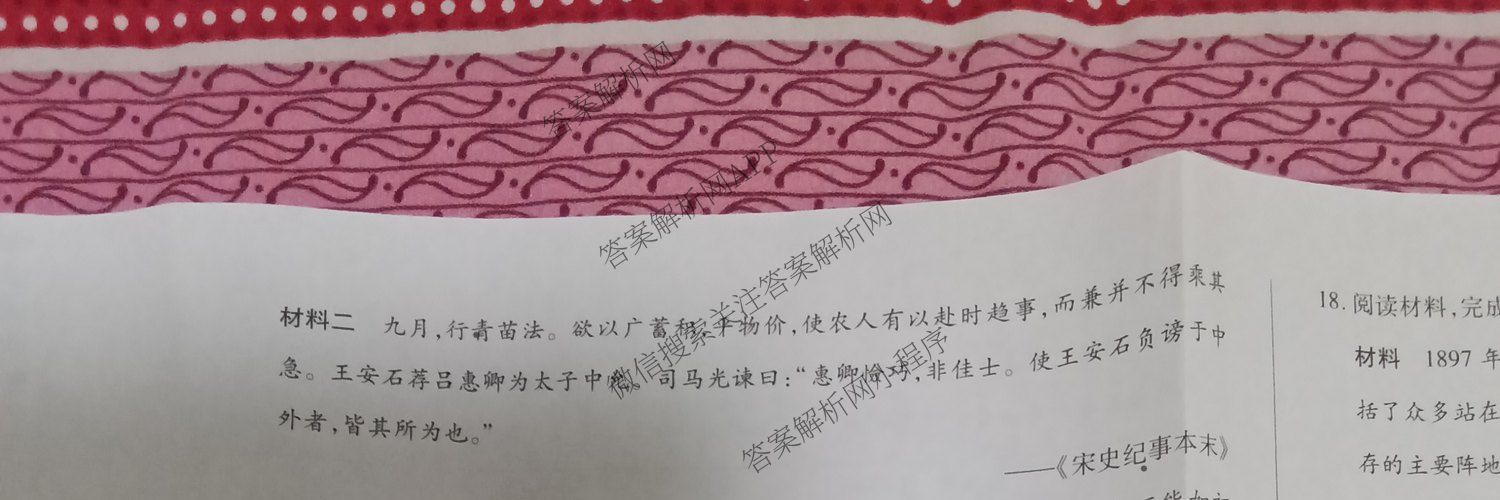 材料二 九月,行青苗法。欲以广蓄积,平物价,使农人有以赴时趋事,而兼并不得乘其
急。王安石荐吕惠卿为太子中允。司马光谏曰:“惠卿憸巧,非佳士。使王安石负谤于中
外者,皆其所为也。”
——《宋史纪事本末》
18. 阅读材料,完成
材料 1897 年
括了众多站在
存的主要阵地
答案解析网
答案解析网APP
微信搜索关注答案解析网
答案解析网小程序